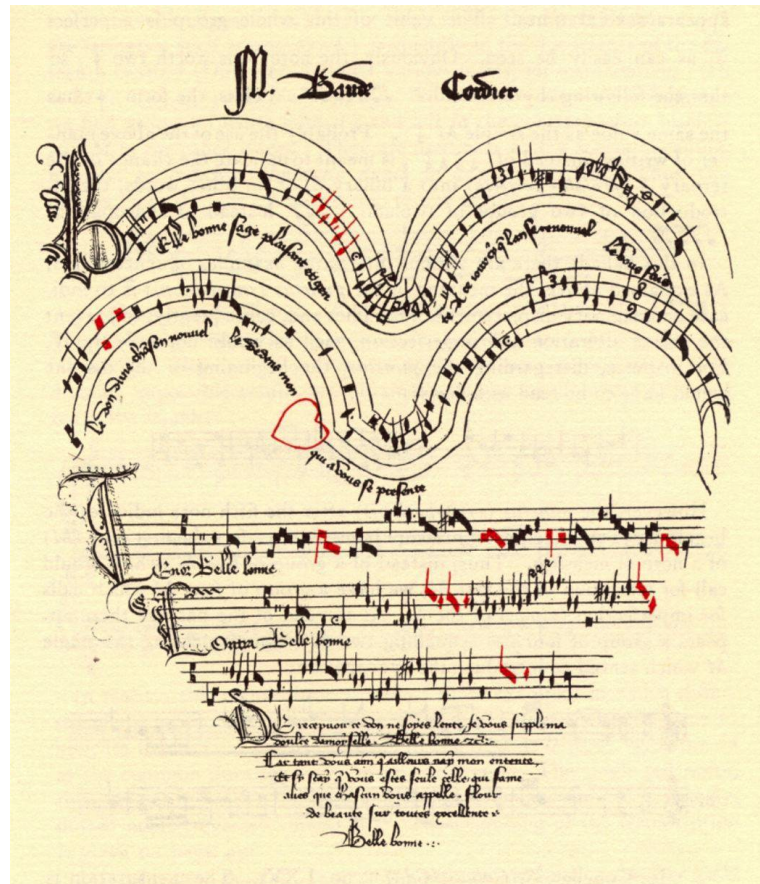 M. Baude Cordier
Belle bonne sage plaisant et gen
te A ce iour q̃ lan se renouuel
Le vous fais
le don dune chãson nouuel
le dedens mon
qui a vous se presente
Tenor Belle bonne
Contra Belle bonne
De recepuoir ce don ne soyes lente Je vous suppli ma
doulce damoyselle. Belle bonne
Car tant vous aim q'aillours nay mon entente
Et sy scay q̃ vous estes seule celle qui fame
aues que chascun vous appelle. flour
de beaute sur toutes excellente
Belle bonne .:.